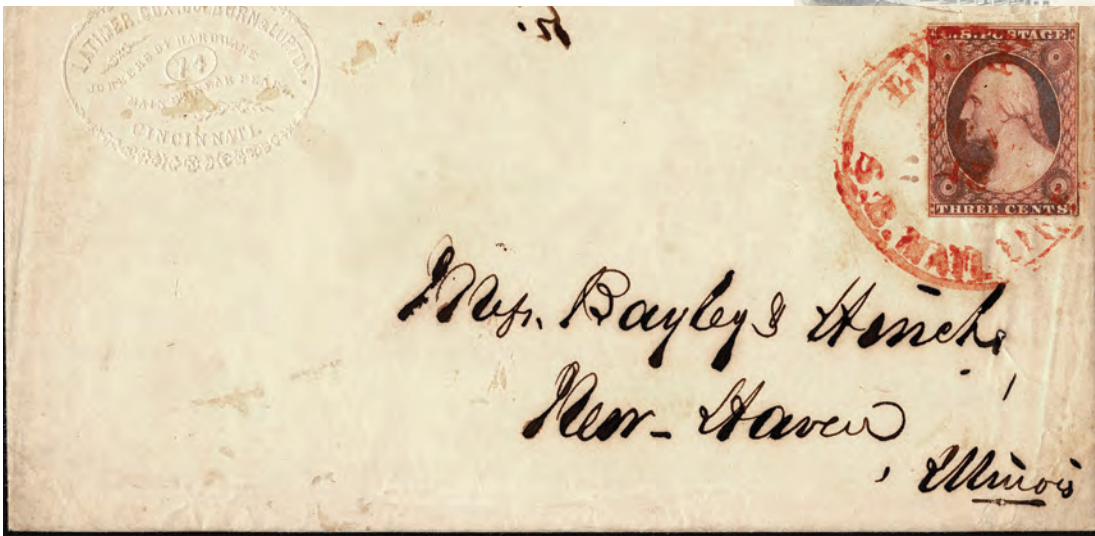 LATIMER, COX, COLBURN & LUPTON,
JOBBERS OF HARDWARE
74
MAIN ST. NEAR PEARL
CINCINNATI.
U.S. POSTAGE
THREE CENTS
U.S. MAIL
Mess. Bayley & Hinch,
New-Haven
, Illinois